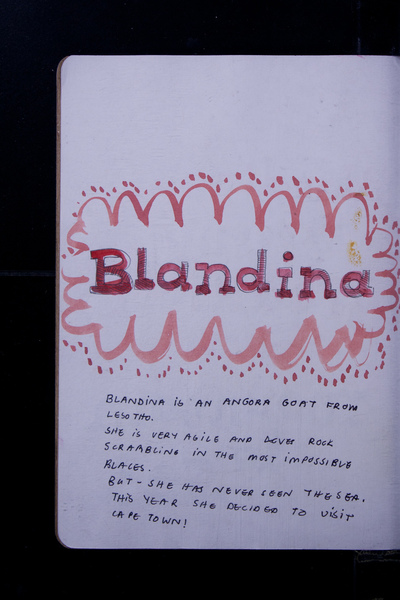 Blandina
BLANDINA is AN ANGORA GOAT FROM
LESOTHO.
SHE IS VERY AGILE AND LOVES ROCK
SCRAABLING IN THE MOST IMPOSSIBLE
PLACES.
BUT - SHE HAS NEVER SEEN THE SEA.
THIS YEAR SHE DECIDED TO VISIT
CAPE TOWN!